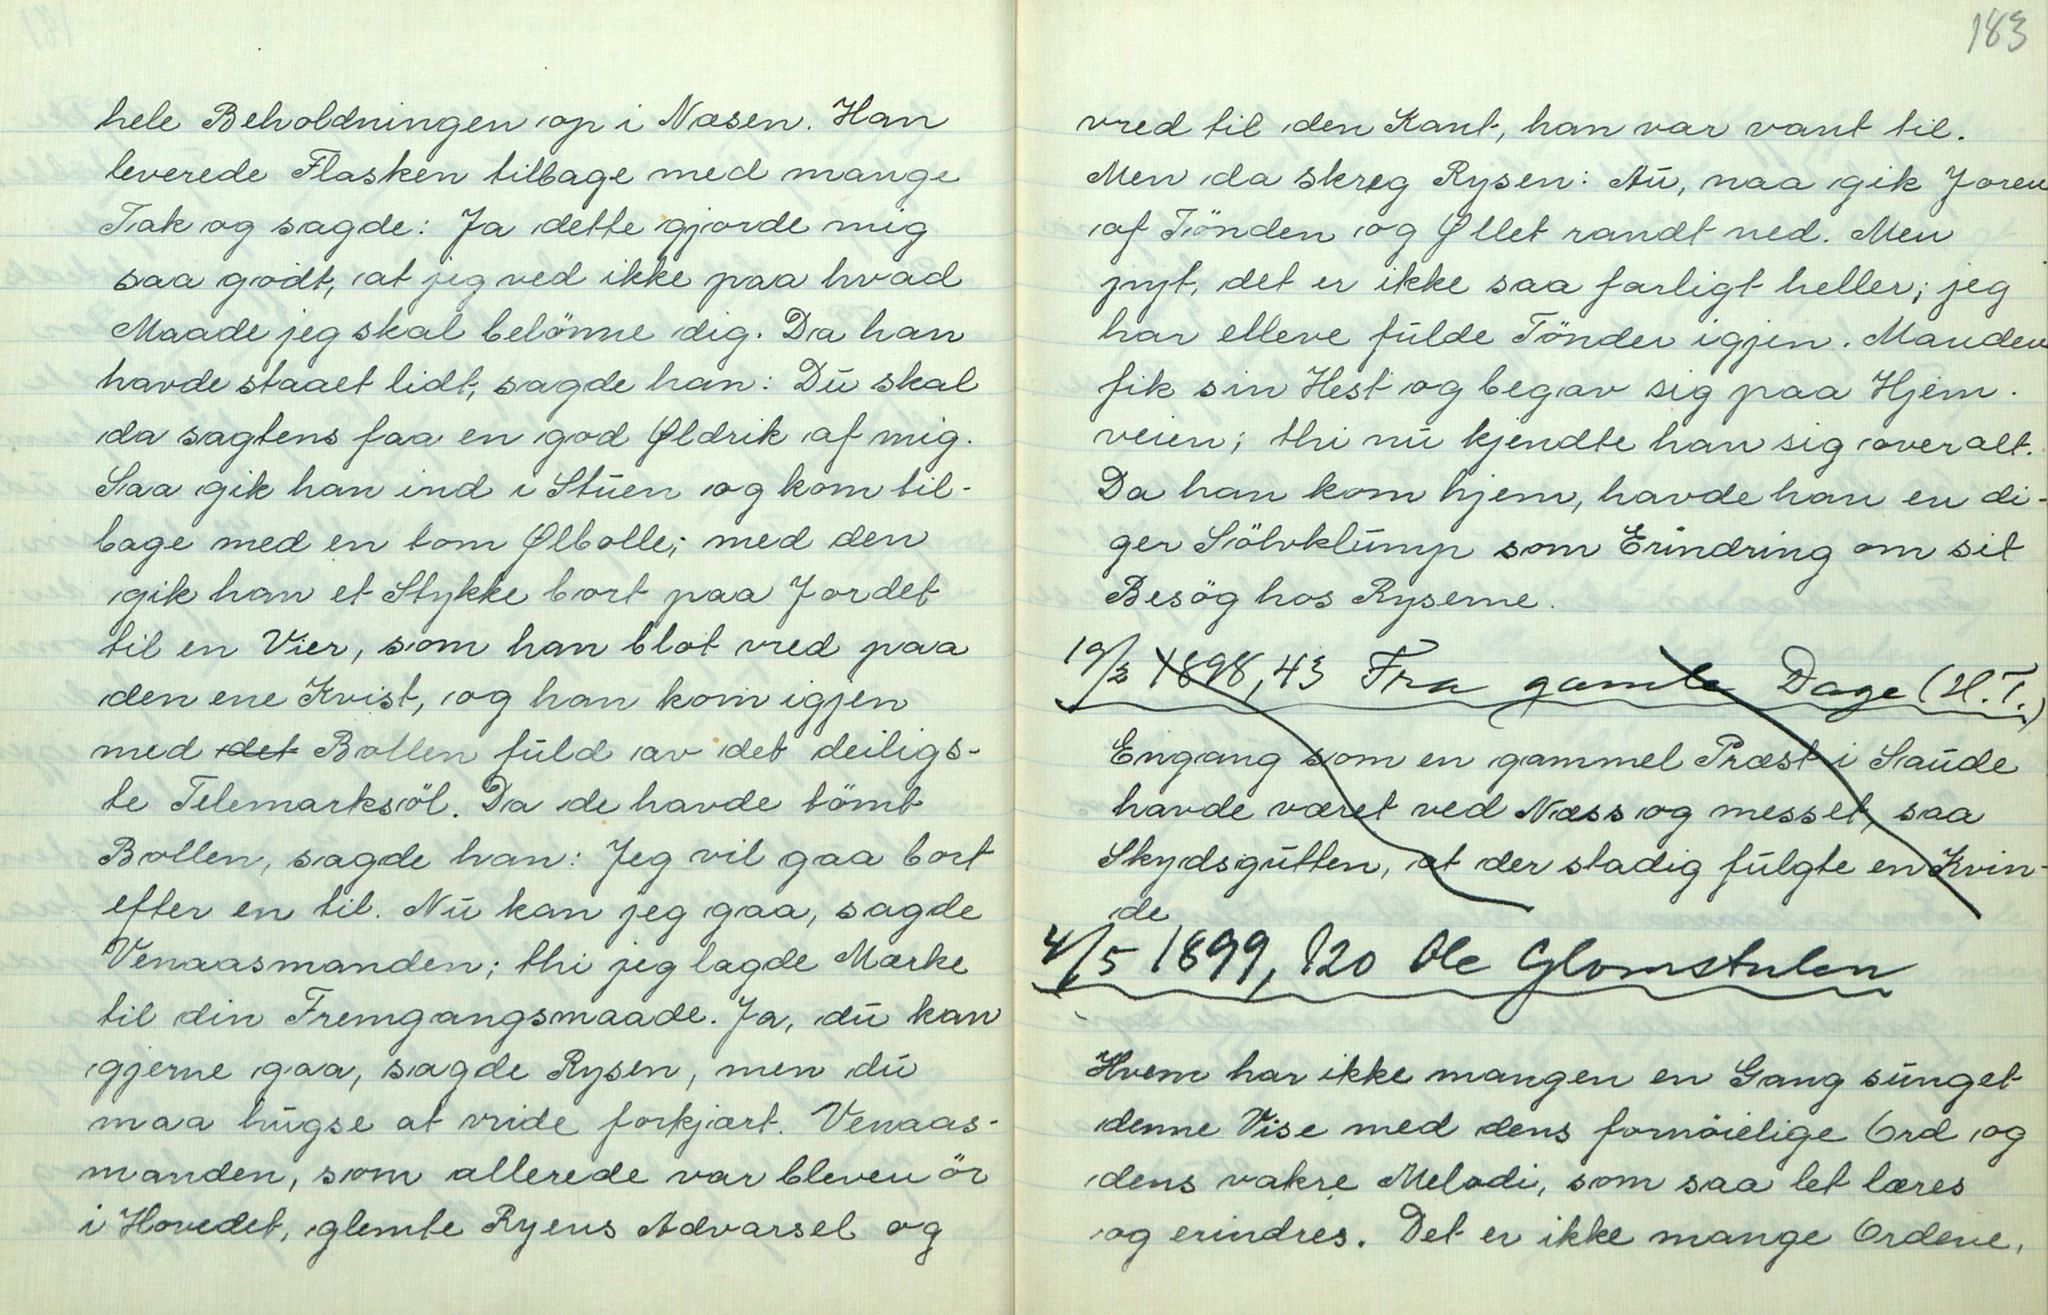 hele Beholdningen op i Næsen. Han
leverede Flasken tilbage med mange
Tak og sagde: Ja dette gjorde mig
saa godt, at jeg ved ikke paa hvad
Maade jeg skal belönne dig. Da han
havde staaet lidt, sagde han: Du skal
da sagtens faa en god Øldrik af mig.
Saa gik han ind i Stuen og kom til-
bage med en tom Ølbolle; med den
gik han et Stykke bort paa Jordet
til en Vier, som han blot vred paa
den ene Kvist, og han kom igjen
med det Bollen fuld av det deiligs-
te Telemarksöl. Da de havde tömt
Bollen, sagde han: Jeg vil gaa bort
efter en til. Nu kan jeg gaa, sagde
Venaasmanden; thi jeg lagde Mærke
til din Fremgangsmaade. Ja, du kan
gjerne gaa, sagde Rysen, men du
maa hugse at vride forkjært. Venaas-
manden, som allerede var bleven ör
i Hovedet, glemte Ryens Advarsel og
183
vred til den Kant, han var vant til.
Men da skreg Rysen: Au, naa gik Joren
af Tönden og Øllet randt ned. Men
pyt, det er ikke saa farligt heller; jeg
har elleve fulde Tönder igjen. Manden
fik sin Hest og begav sig paa Hjem.
veien; thi nu kjendte han sig overalt.
Da han kom hjem, havde han en di-
ger Sölvklump som Erindring om sit
Besög hos Ryserne.
19/3 1898, 43 Fra gamle Dage (H.T.)
Engang som en gammel Præst i Saude
havde været ved Næss og messet, saa
Skydsgutten, at der stadig fulgte en Kvin-
de
4/5 1899, 120 Ole Glomstulen
Hvem har ikke mangen en Gang sunget
denne Vise med dens fornöielige Ord og
dens vakre Melodi, som saa let læres
og erindres. Det er ikke mange Ordene,